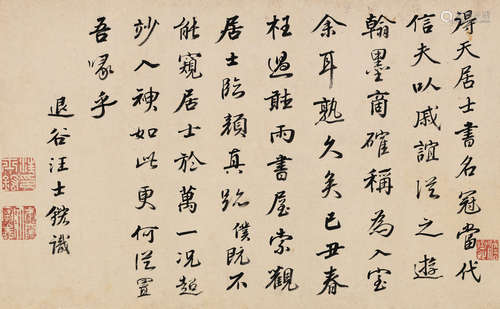 得天居士書名冠當代
信夫以戚誼從之遊
翰墨商確稱為入室
余耳熟久矣己丑春
枉過聽雨書屋索觀
居士臨顏真跡僕既不
能窺居士於萬一況超
妙入神如此更何從置
吾喙乎
退谷汪士鋐識